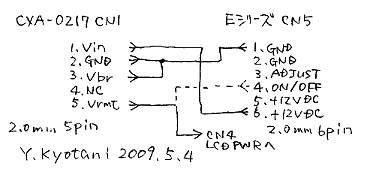 CXA-0217 CN1
Eシリーズ CN5
1. Vin
2. GND
3. Vbr
4. NC
5. Vrmt
2.0mm 5pin
1. GND
2. GND
3. ADJUST
4. ON/OFF
5. +12VDC
6. +12VDC
2.0mm 6pin
CN4
LCDPWRへ
Y. Kyotani 2009. 5. 4